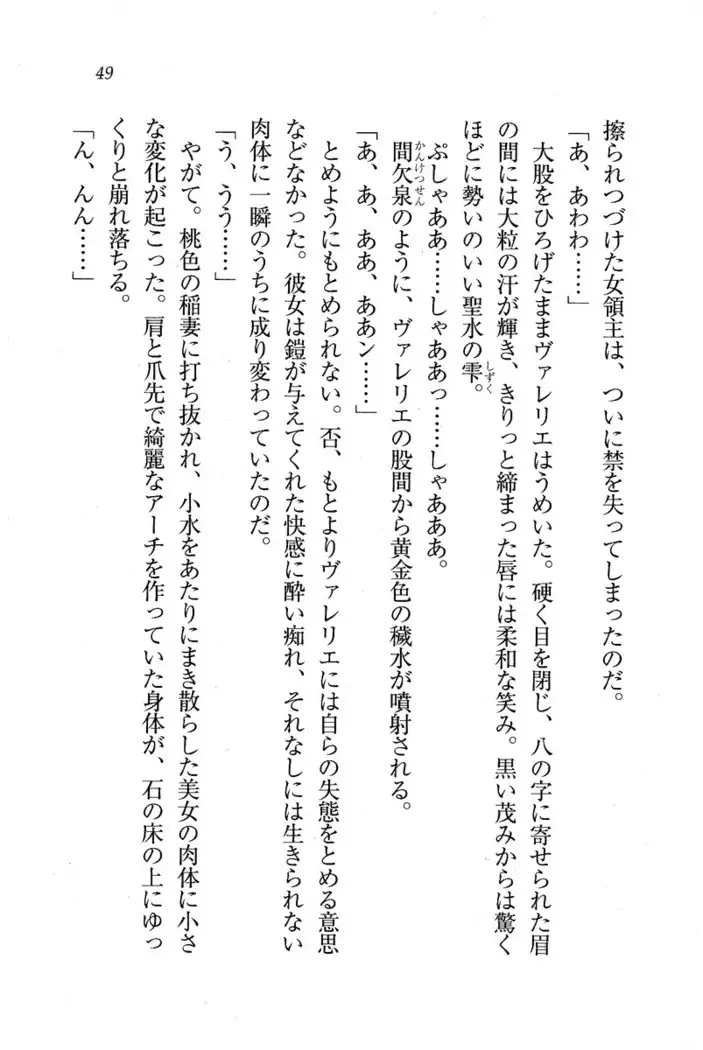 49
擦られつづけた女領主は、ついに禁を失ってしまったのだ。
「あ、あわわ……」
大股をひろげたままヴァレリエはうめいた。硬く目を閉じ、八の字に寄せられた眉
の間には大粒の汗が輝き、きりっと締まった唇には柔和な笑み。黒い茂みからは驚く
ほどに勢いのいい聖水の雫。
しずく
ぷしゃああ……しゃああっ……しゃあああ。
間欠泉のように、ヴァレリエの股間から黄金色の穢水が噴射される。
かんけつせん
「あ、あ、ああ、ああン……」
とめようにもとめられない。否、もとよりヴァレリエには自らの失態をとめる意思
などなかった。彼女は鎧が与えてくれた快感に酔い痴れ、それなしには生きられない
肉体に一瞬のうちに成り変わっていたのだ。
「う、うう……」
やがて。桃色の稲妻に打ち抜かれ、小水をあたりにまき散らした美女の肉体に小さ
な変化が起こった。肩と爪先で綺麗なアーチを作っていた身体が、石の床の上にゆっ
くりと崩れ落ちる。
「ん、んん……」